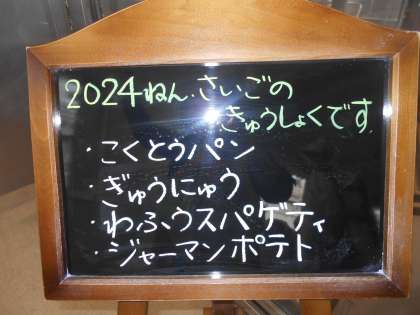 2024ねん.さいごの
きゅうしょくです
・こくとうパン
・ぎゅうにゅう
・わふうスパゲティ
・ジャーマンポテト